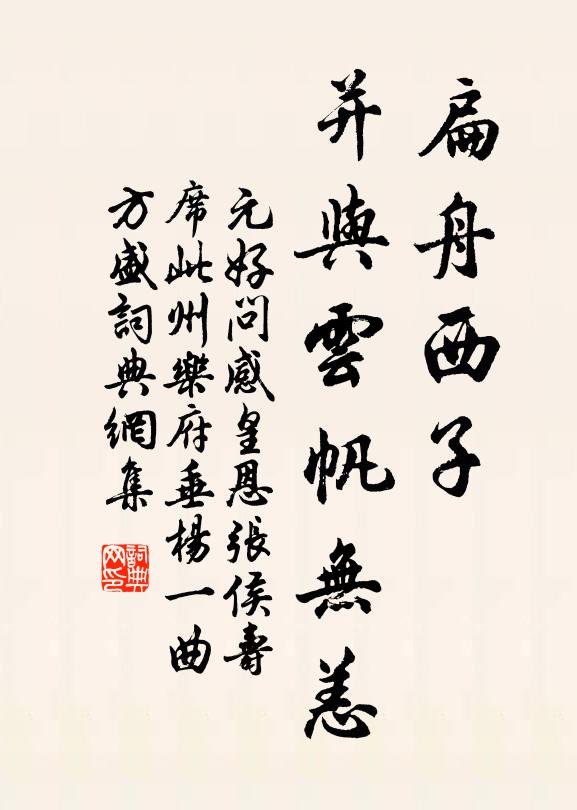 扁舟西子
并與雲帆無恙
元好問感皇恩張侯壽
席此州樂府垂楊一曲
方盛詞典網集
詞典
网印